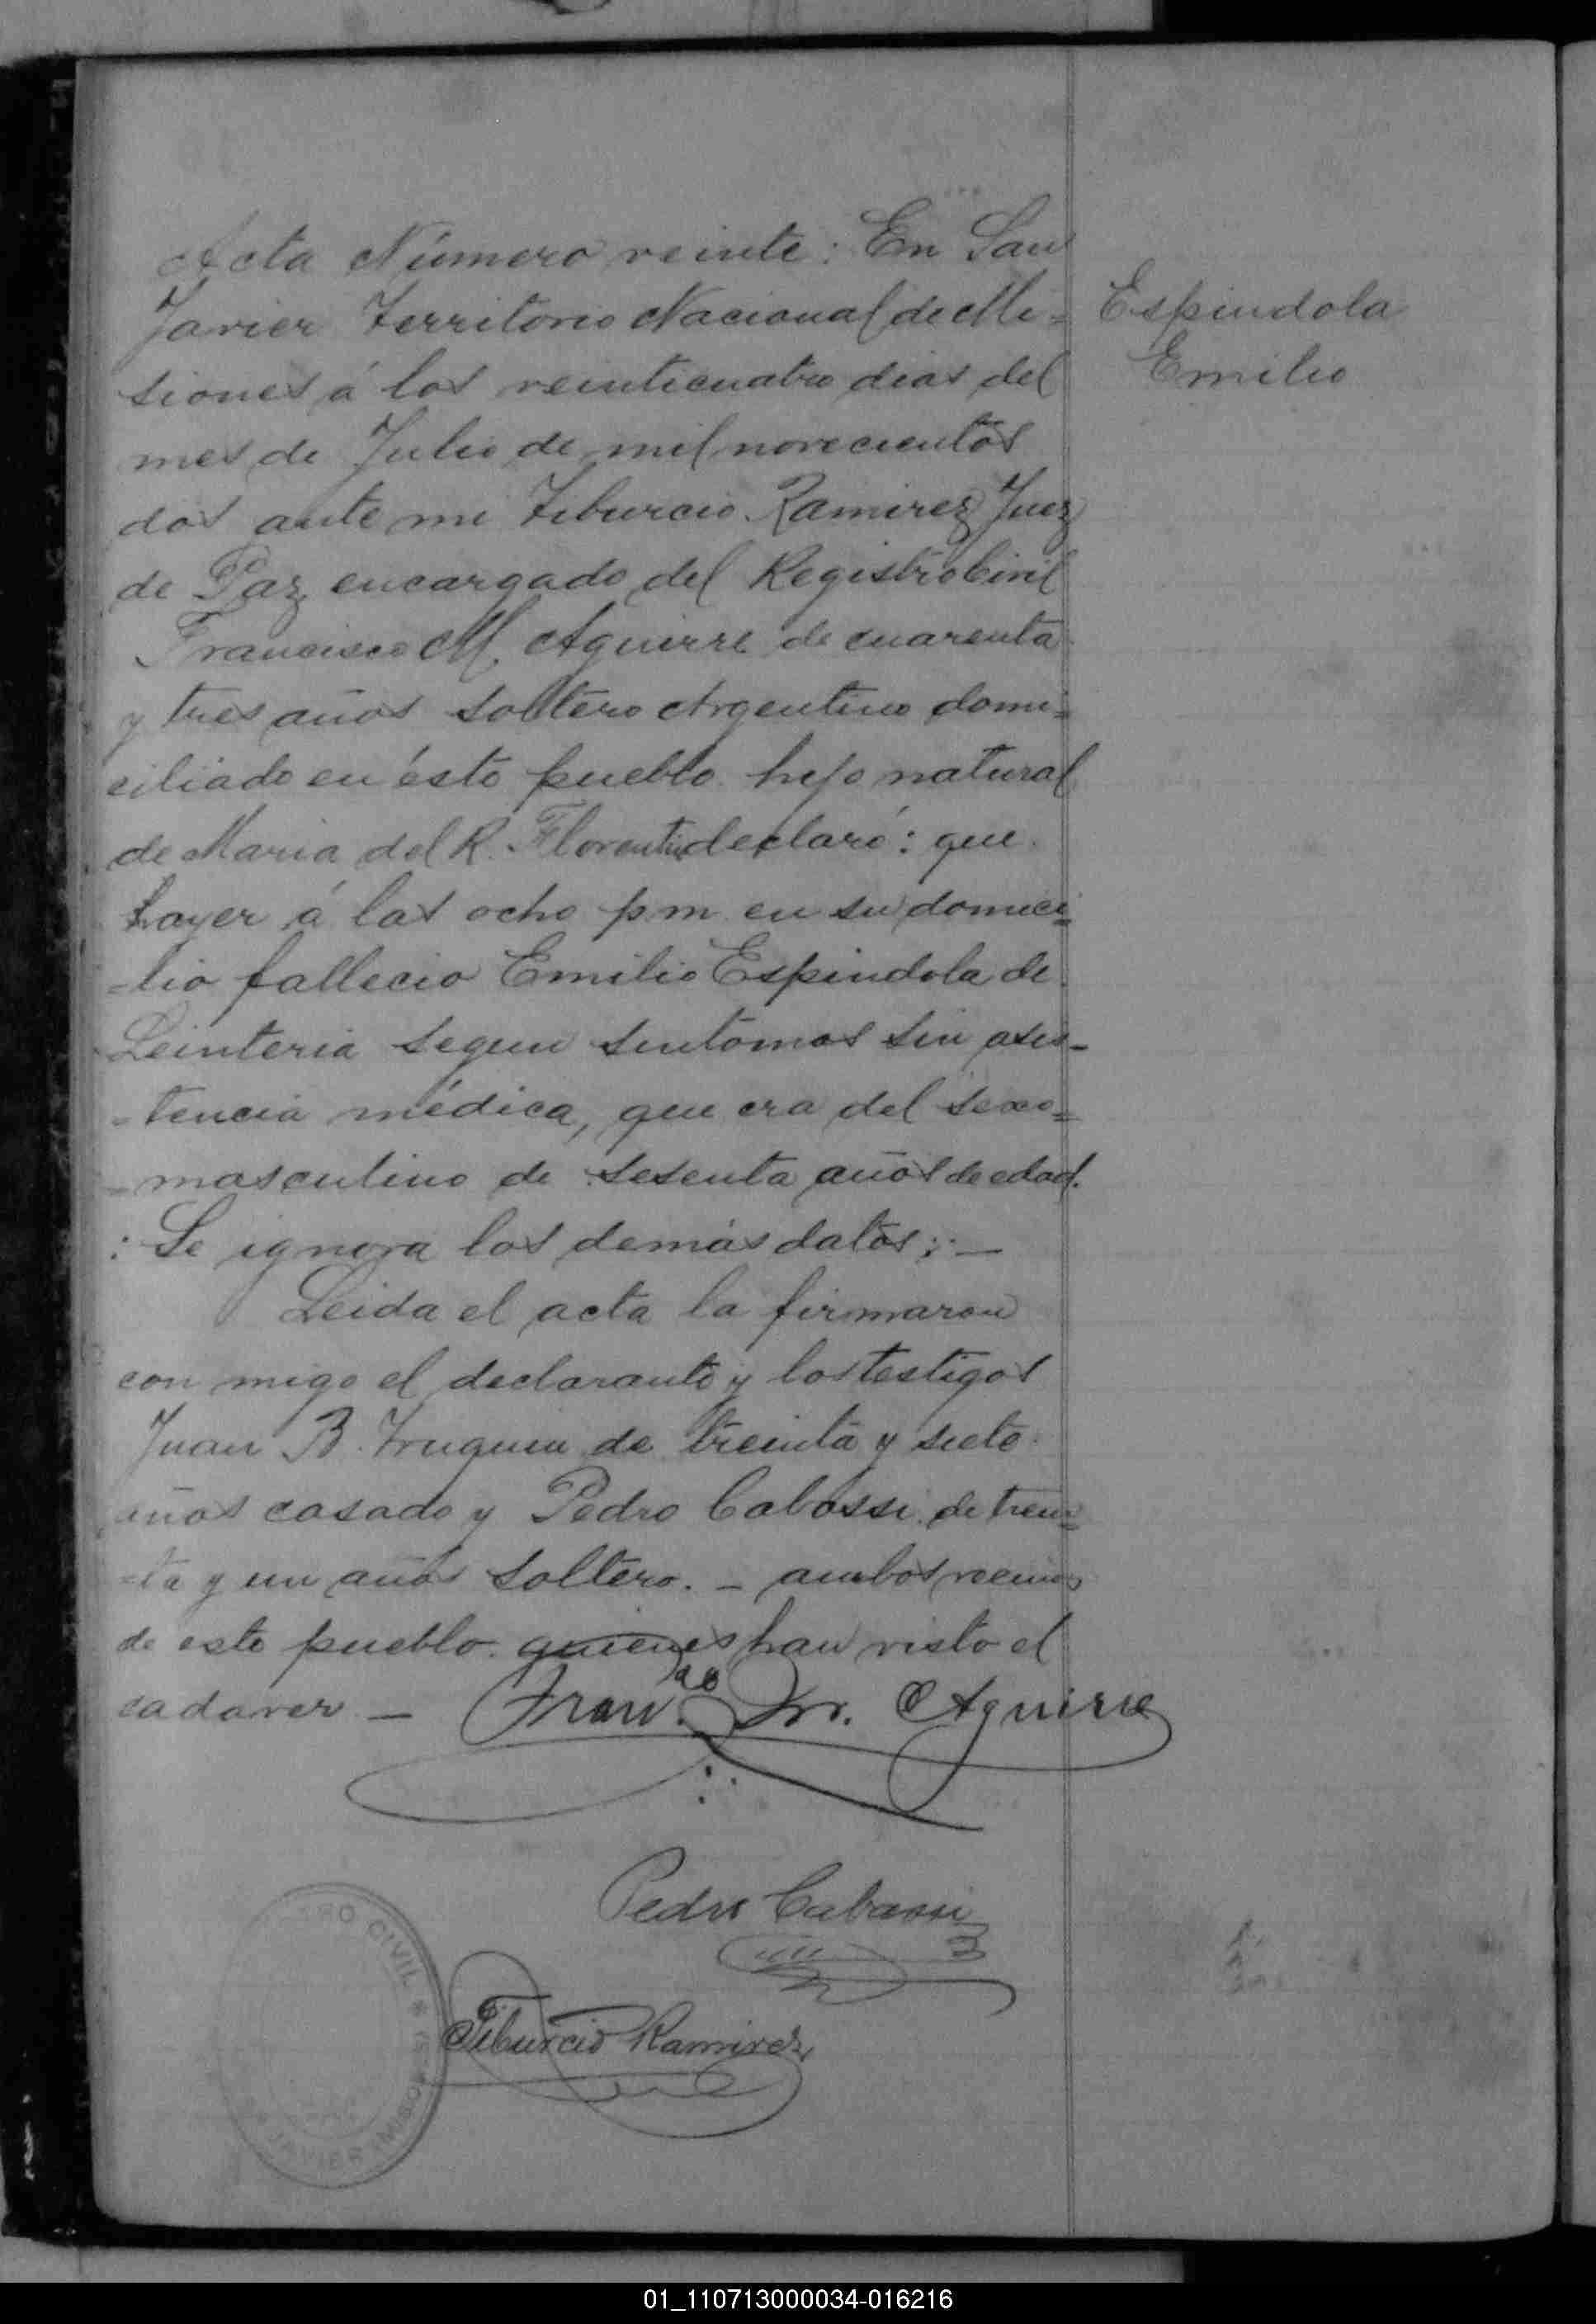 Acta Número veinte: En San
Javier Territorio Nacional de Mi=
siones á los veinticuatro dias del
mes de Julio de mil novecientos
dos ante mi Tiburcio Ramirez Juez
de Paz encargado del Registro Civil
Francisco M. Aguirre de cuarenta
y tres años soltero Argentino domi=
ciliado en éste pueblo hijo natural
de Maria del R. Florentin declaró: que
hayer á las ocho p m en su domici=
=lio fallecio Emilio Espindola de
Leinteria segun sintomas sin asis-
=tencia médica, que era del sexo=
=masculino de sesenta años de edad.
: Se ignora los demás datos;:—
Leida el acta la firmaron
con migo el declarante y los testigos
Juan B. de treinta y siete
años casado y Pedro Cabossi de trein=
=ta y un años soltero. — ambos vecinos
de este pueblo quienes han visto el
cadaver —
Espindola
Emilio
Franco. M. Aguirre
Pedro Cabassi
Tiburcio Ramirez
RO CIVIL *
JAVIER
01_110713000034-016216